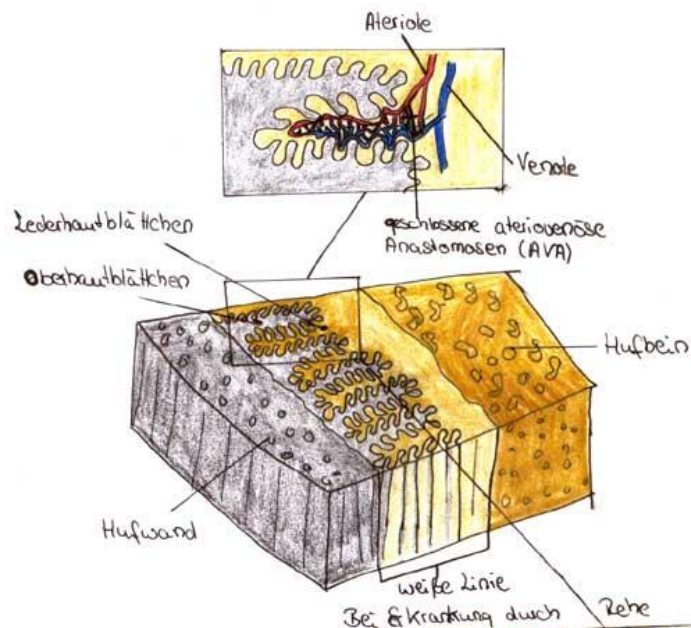 Ateriole
Venole
geschlossene ateriovenöse
Anastomosen (AVA)
Lederhautblättchen
Oberhautblättchen
Hufbein
Hufwand
weiße Linie
Bei Erkrankung durch Rehe